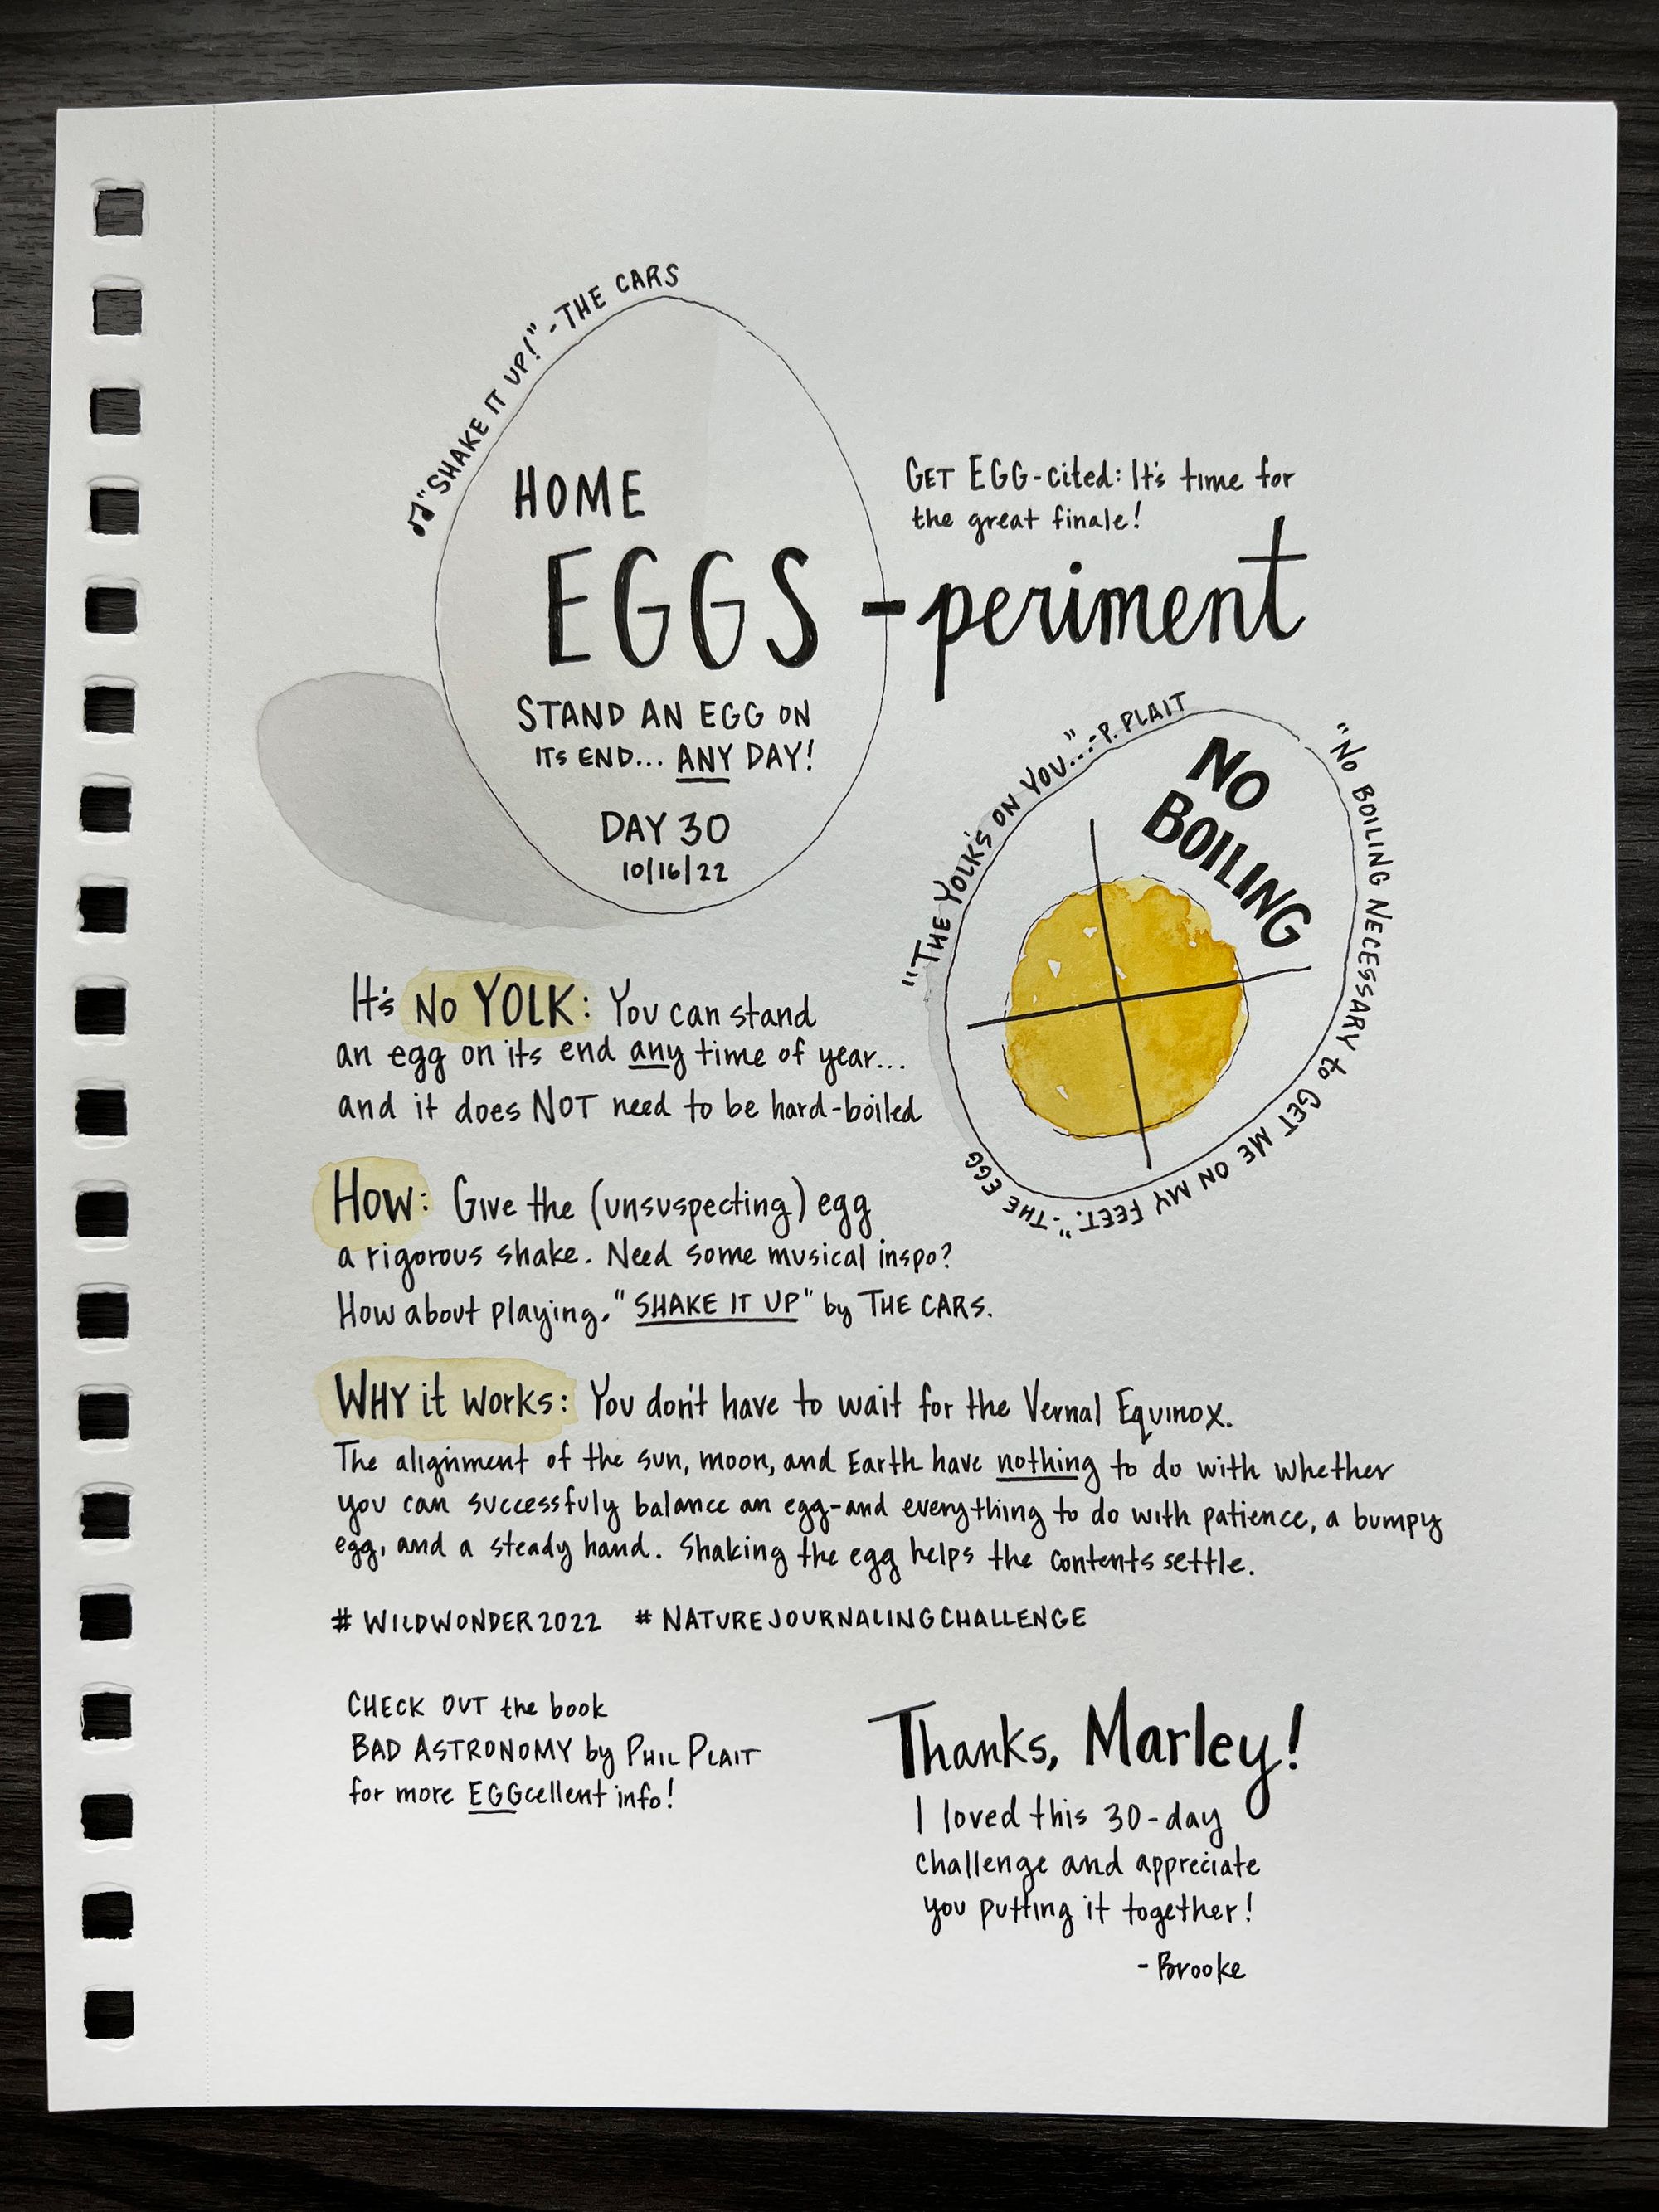 ♫"SHAKE IT UP!" - THE CARS
HOME
EGGS - periment
GET EGG-cited: It's time for
the great finale!
STAND AN EGG ON
ITS END... ANY DAY!
DAY 30
10/16/22
"THE YOLK'S ON YOU..." -P. PLAIT
NO
BOILING
"NO BOILING NECESSARY to GET ME ON MY FEET." -THE EGG
It's NO YOLK: You can stand
an egg on its end any time of year...
and it does NOT need to be hard-boiled
How: Give the (unsuspecting) egg
a rigorous shake. Need some musical inspo?
How about playing, "SHAKE IT UP" by THE CARS.
WHY it works: You don't have to wait for the Vernal Equinox.
The alignment of the sun, moon, and Earth have nothing to do with whether
you can successfuly balance an egg-and everything to do with patience, a bumpy
egg, and a steady hand. Shaking the egg helps the contents settle.
# WILDWONDER2022 # NATUREJOURNALINGCHALLENGE
CHECK OUT the book
BAD ASTRONOMY by PHIL PLAIT
for more EGGcellent info!
Thanks, Marley!
I loved this 30-day
challenge and appreciate
you putting it together!
- Brooke